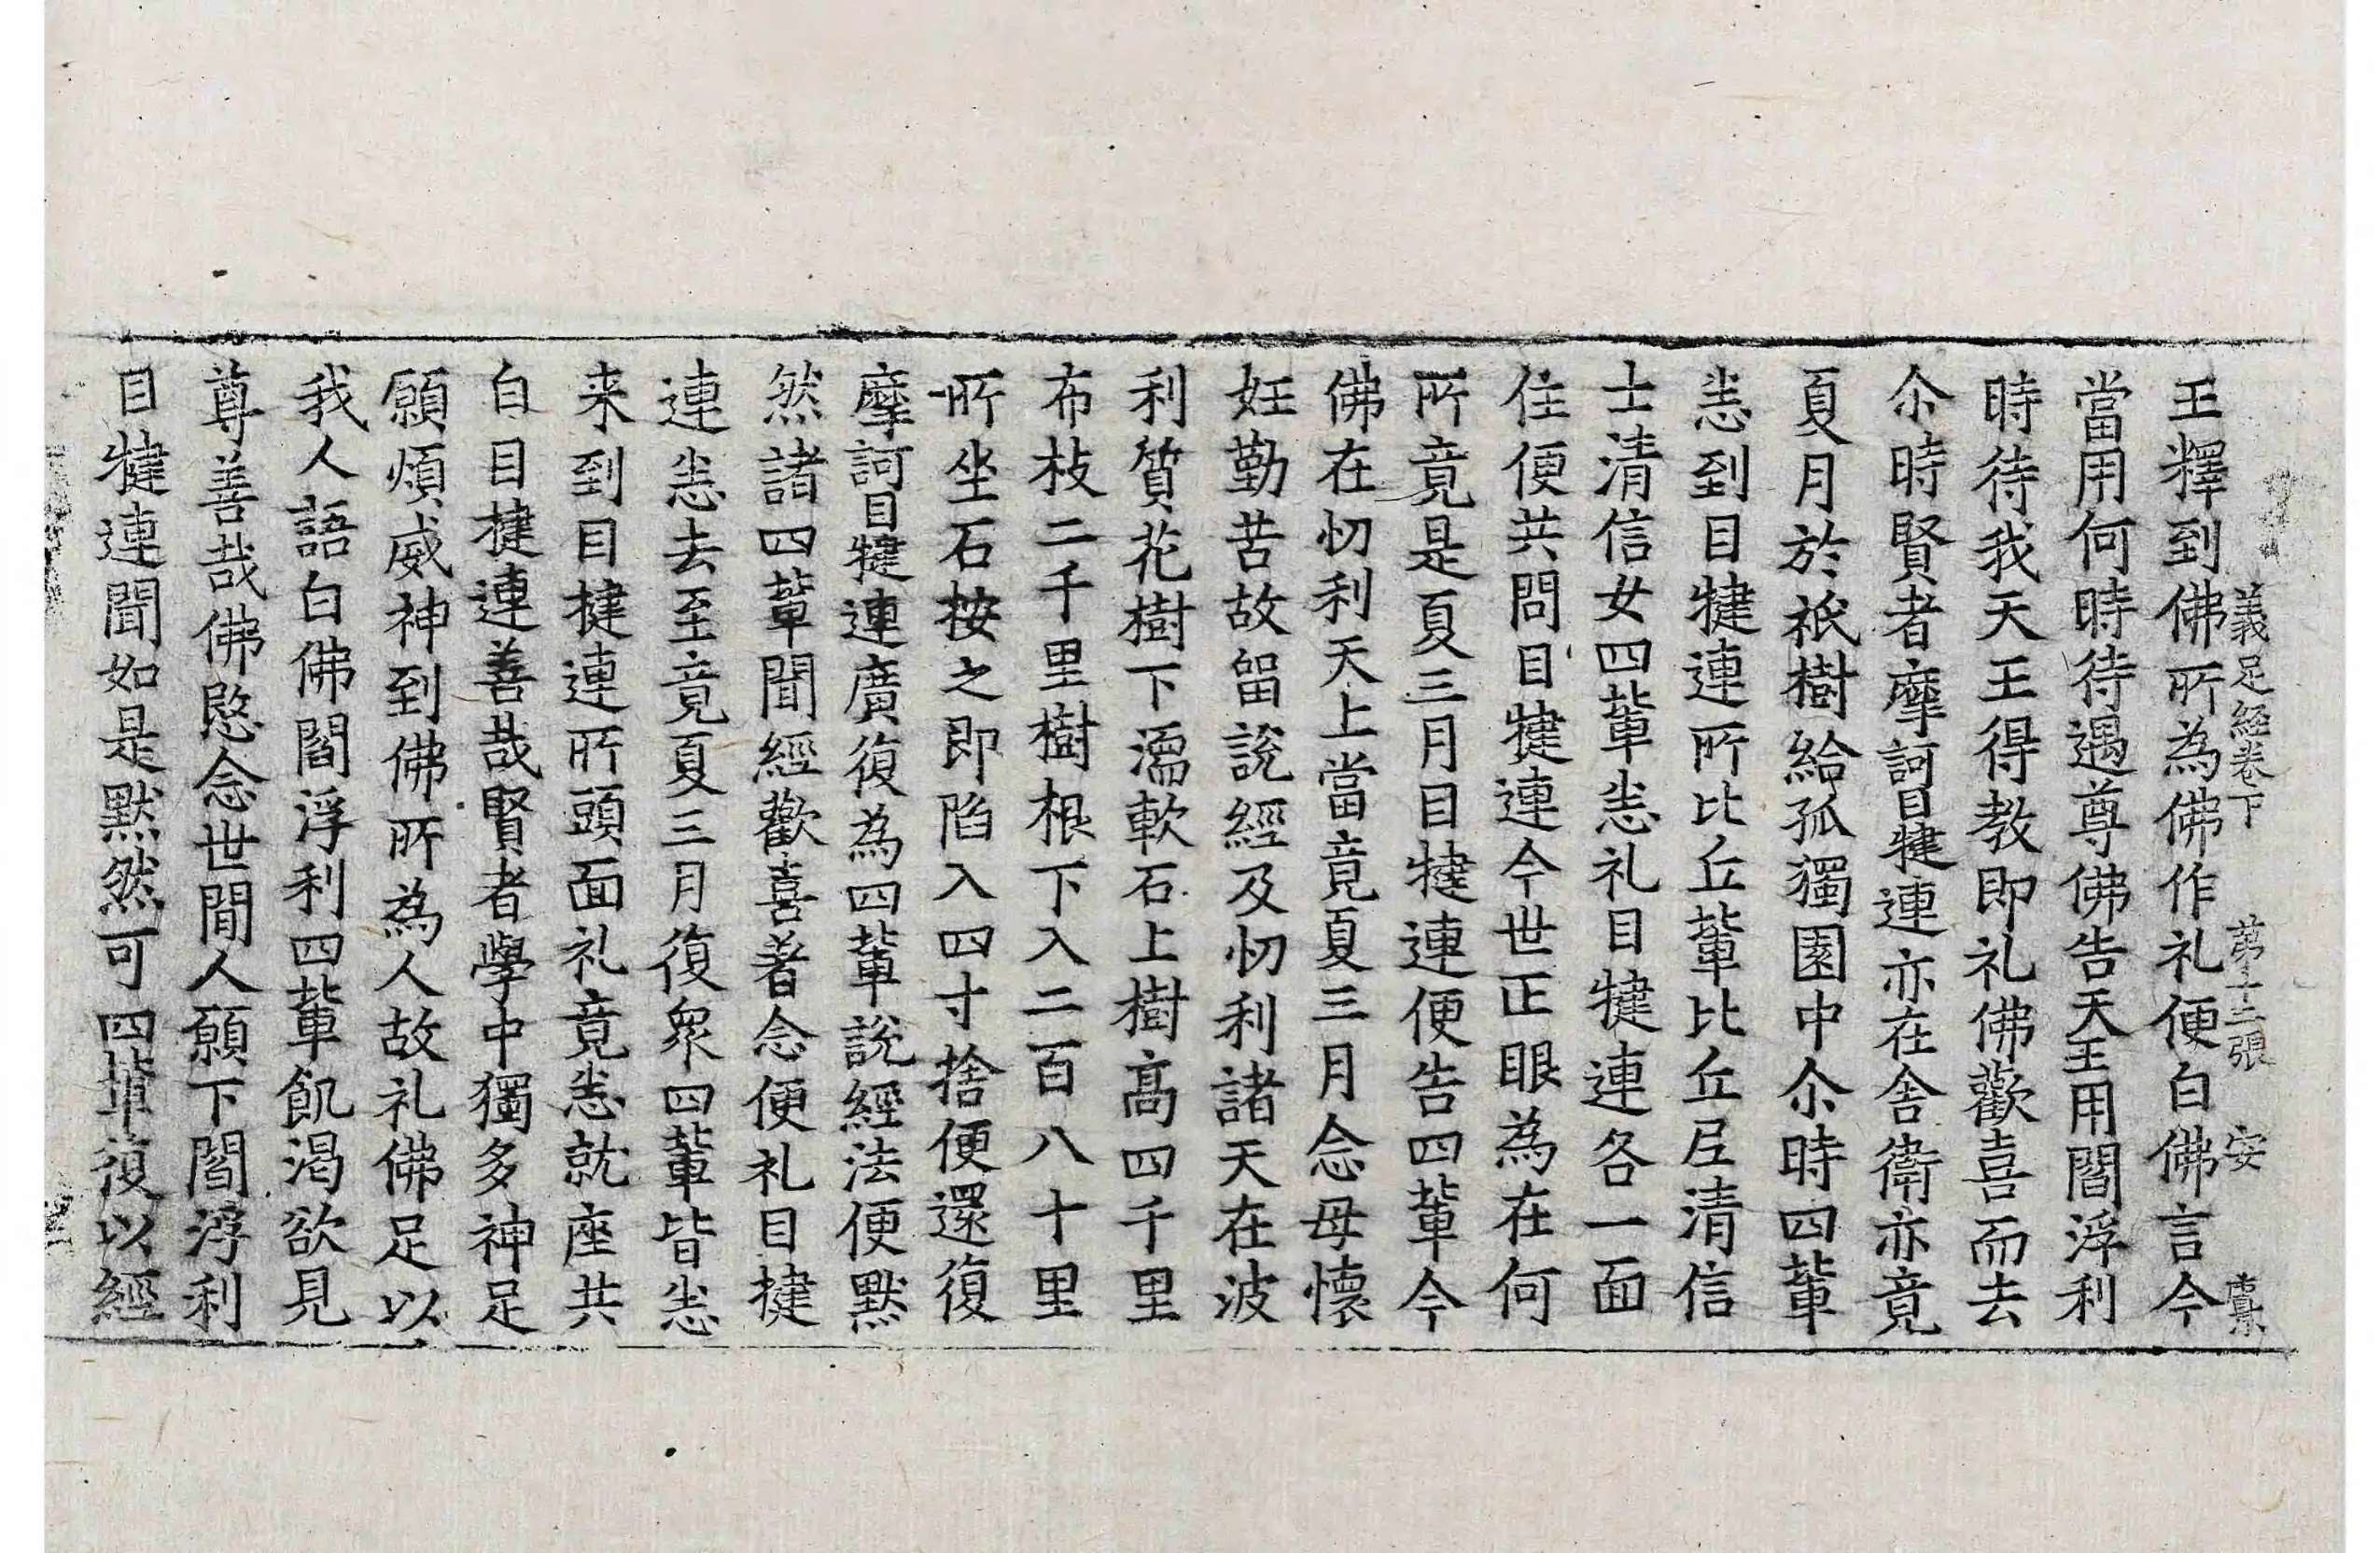 義足經卷下 第十三張 安
王釋到佛所為佛作礼便白佛言今
當用何時待遇尊佛告天王用閻浮利
時待我天王得教即礼佛歡喜而去
尒時賢者摩訶目犍連亦在舍衛亦竟
夏月於祇樹給孤獨園中尒時四輩
悉到目犍連所比丘輩比丘尼清信
士清信女四輩悉礼目犍連各一面
住便共問目犍連今世正眼為在何
所竟是夏三月目犍連便告四輩今
佛在忉利天上當竟夏三月念母懷
妊勤苦故留說經及忉利諸天在波
利質花樹下濡軟石上樹高四千里
布枝二千里樹根下入二百八十里
所坐石按之即陷入四寸捨便還復
摩訶目犍連廣復為四輩說經法便默
然諸四輩聞經歡喜著念便礼目揵
連悉去至竟夏三月復眾四輩皆悉
来到目揵連所頭面礼竟悉就座共
白目揵連善哉賢者學中獨多神足
願煩威神到佛所為人故礼佛足以
我人語白佛閻浮利四輩飢渴欲見
尊善哉佛愍念世間人願下閻浮利
目犍連聞如是默然可四輩復以經